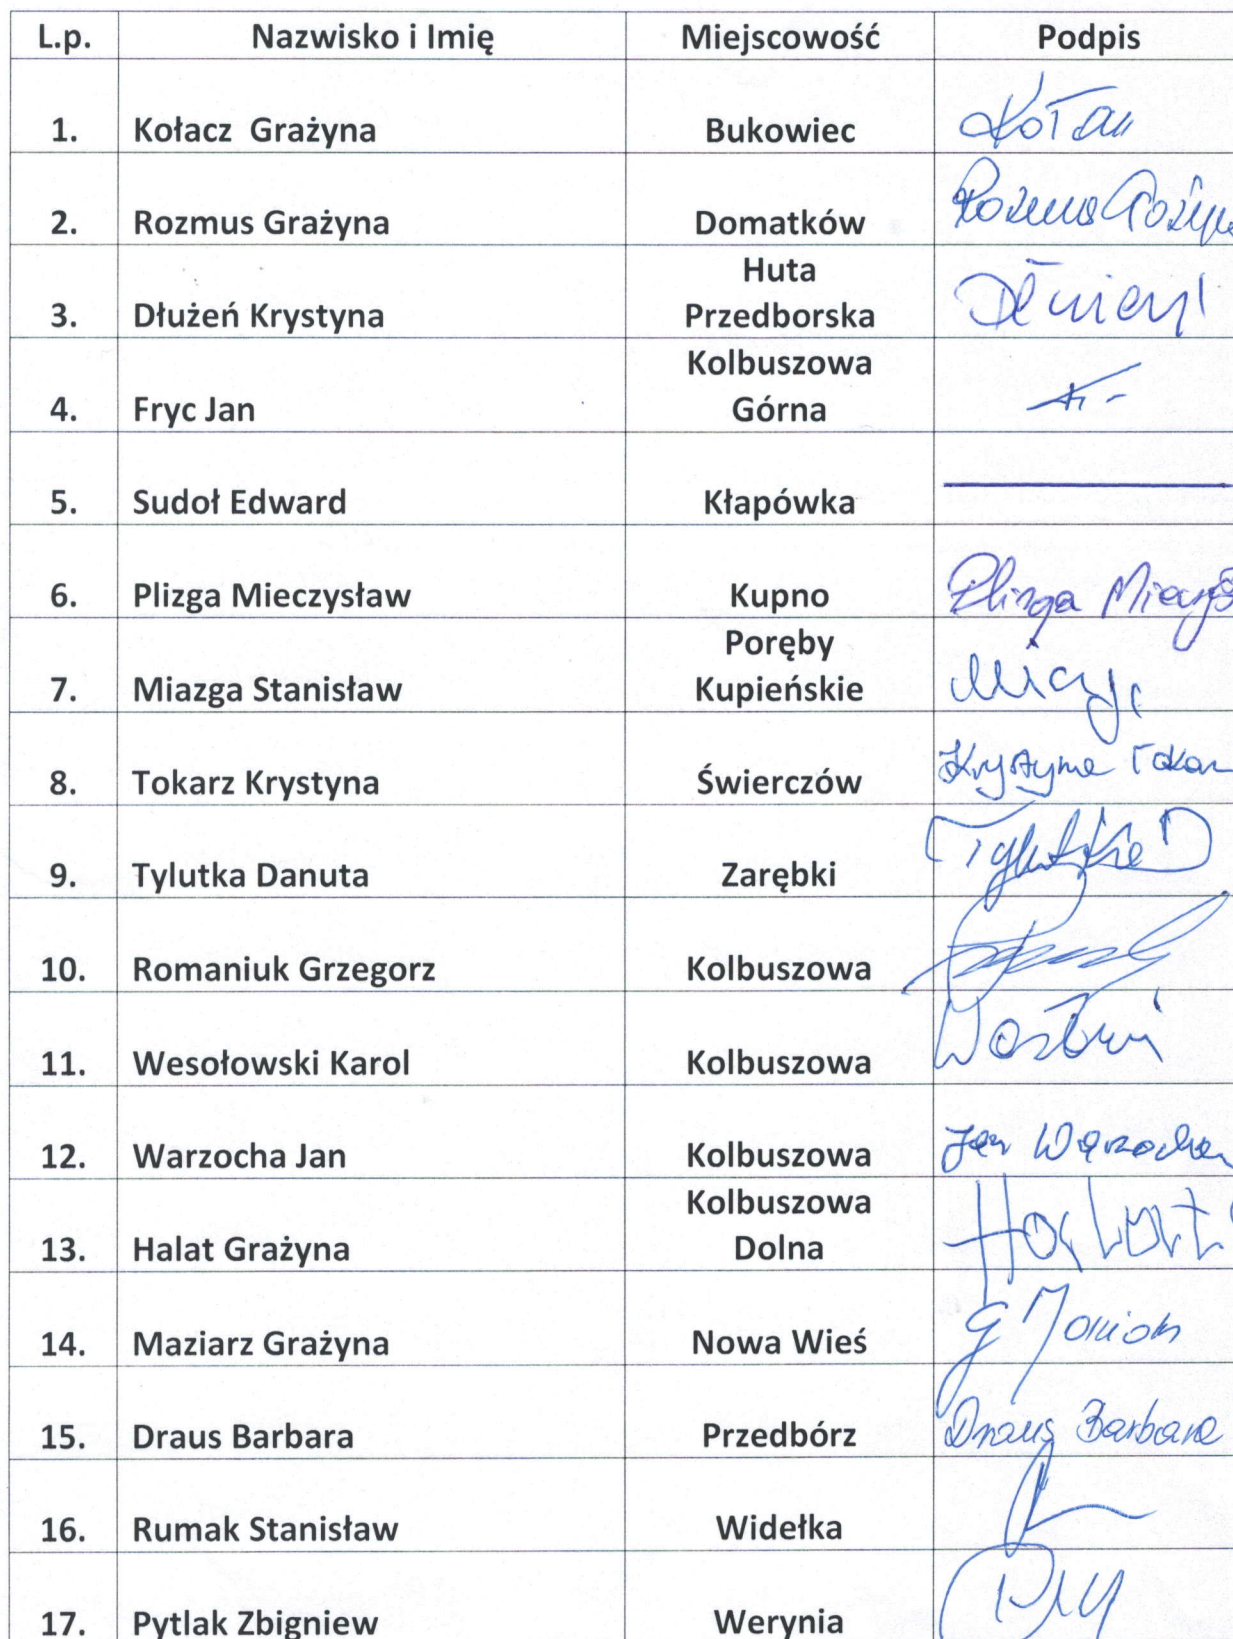 L.p. Nazwisko i Imię Miejscowość Podpis
1. Kołacz Grażyna Bukowiec
2. Rozmus Grażyna Domatków Rozmus Grażyn
Huta
3. Dłużeń Krystyna Przedborska
Kolbuszowa
4. Fryc Jan Górna
5. Sudoł Edward Kłapówka
6. Plizga Mieczysław Kupno Plizga
Poręby
7. Miazga Stanisław Kupieńskie
8. Tokarz Krystyna Świerczów Krystyna Tokar
9. Tylutka Danuta Zarębki Tylutka D
10. Romaniuk Grzegorz Kolbuszowa
11. Wesołowski Karol Kolbuszowa
12. Warzocha Jan Kolbuszowa Jan Warzocha
Kolbuszowa
13. Halat Grażyna Dolna Halat
14. Maziarz Grażyna Nowa Wieś
15. Draus Barbara Przedbórz Draus Barbara
16. Rumak Stanisław Widełka
17. Pytlak Zbigniew Werynia